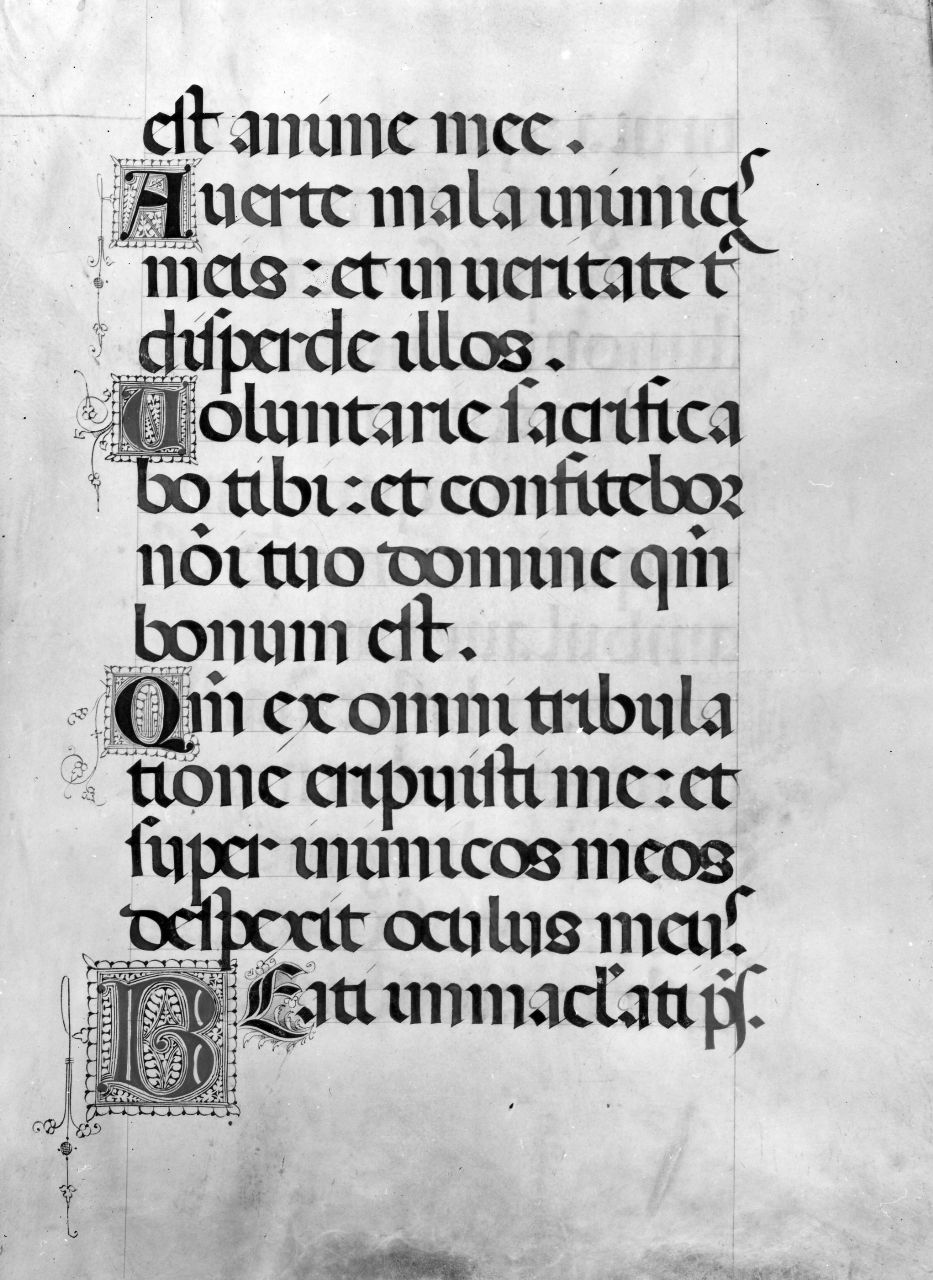 est anime mee .
Auerte mala inimicis
meis : et in ueritate t̃
disperde illos .
Uoluntarie sacrifica
bo tibi : et confitebor
nõi tuo domine qm̃
bonum est .
Qm̃ ex omni tribula
tione eripuisti me : et
super inimicos meos
despexit oculus meus .
BEati immacl̃ati ps .